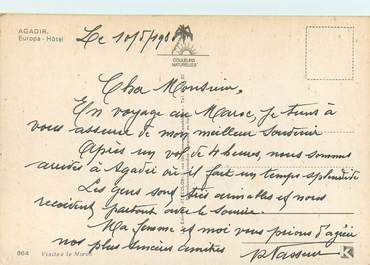 AGADIR.
Europa - Hôtel
Le 10/5/198
COULEURS
NATURELLES
Cher Monsieur,
En voyage au Maroc, je tiens à
vous assurer de mon meilleur souvenir
Après un vol de 4 heures, nous sommes
arrivés à Agadir où il fait un temps splendide
Les gens sont très aimables et nous
reçoivent partout avec le sourire.
Ma femme et moi vous prions d'agréer
nos plus sincères amitiés
864 Visitez le Maroc
K